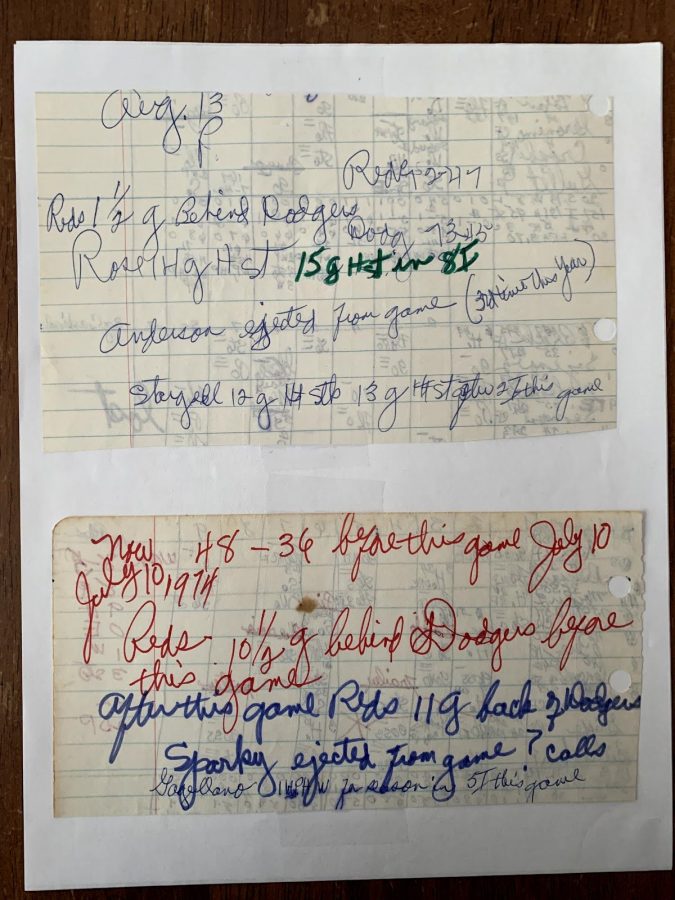 Aug. 13
P.
Reds 72-47
Reds 1 1/2 g Behind Dodgers
Dodg 73-45
Rose 14 g H St 15 g H st in 8 I
Anderson ejected from game (3rd time this year)
Stargell 12 g Hit Stk 13 g H St after 2 I this game
Now 48-36 before this game July 10
July 10, 1974
Reds 10 1/2 g behind Dodgers before
this game
After this game Reds 11 g back of Dodgers
Sparky ejected from game? calls
for season in 5 I this game